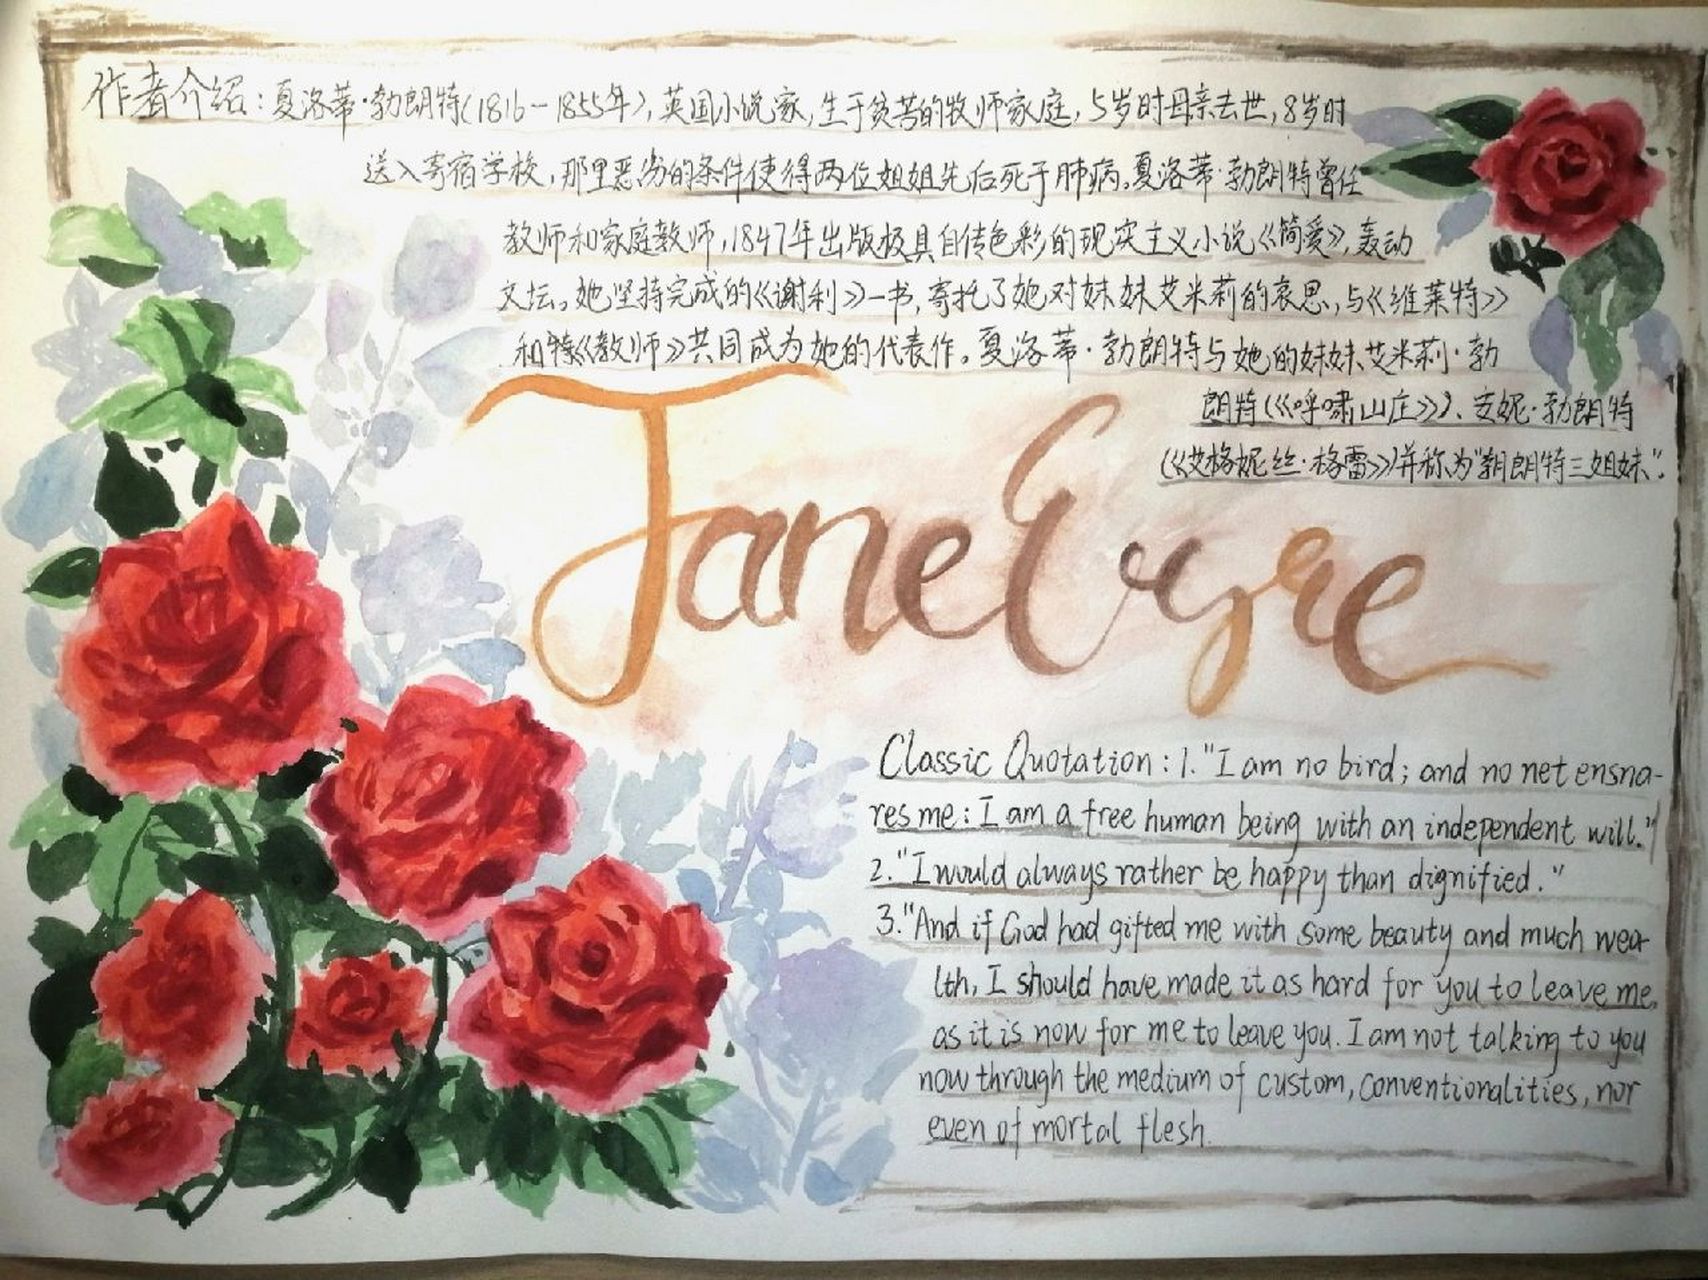 作者介绍：夏洛蒂·勃朗特（1816－1855年），英国小说家，生于贫苦的牧师家庭，5岁时母亲去世，8岁时
送入寄宿学校，那里恶劣的条件使得两位姐姐先后死于肺病。夏洛蒂·勃朗特曾任
教师和家庭教师，1847年出版极具自传色彩的现实主义小说《简爱》，轰动
文坛。她坚持完成的《谢利》一书，寄托了她对妹妹艾米莉的哀思，与《维莱特》
和《教师》共同成为她的代表作。夏洛蒂·勃朗特与她的妹妹艾米莉·勃
朗特（《呼啸山庄》）、安妮·勃朗特
（《艾格妮丝·格雷》）并称为"朗特三姐妹"。
Jane Eyre
Classic Quotation: 1."I am no bird; and no net ensna-
res me: I am a free human being with an independent will."
2."I would always rather be happy than dignified."
3."And if God had gifted me with some beauty and much wea-
lth, I should have made it as hard for you to leave me,
as it is now for me to leave you. I am not talking to you
now through the medium of custom, conventionalities, nor
even of mortal flesh.